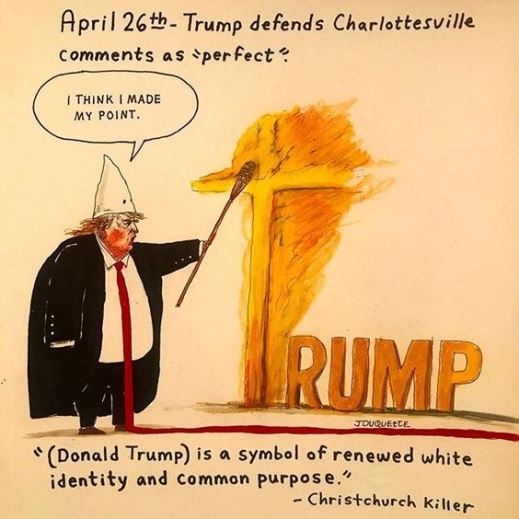 April 26th - Trump defends Charlottesville
comments as "perfect":
I THINK I MADE
MY POINT.
TRUMP
JDUQUETTE
"(Donald Trump) is a symbol of renewed white
identity and common purpose."
- Christchurch Killer